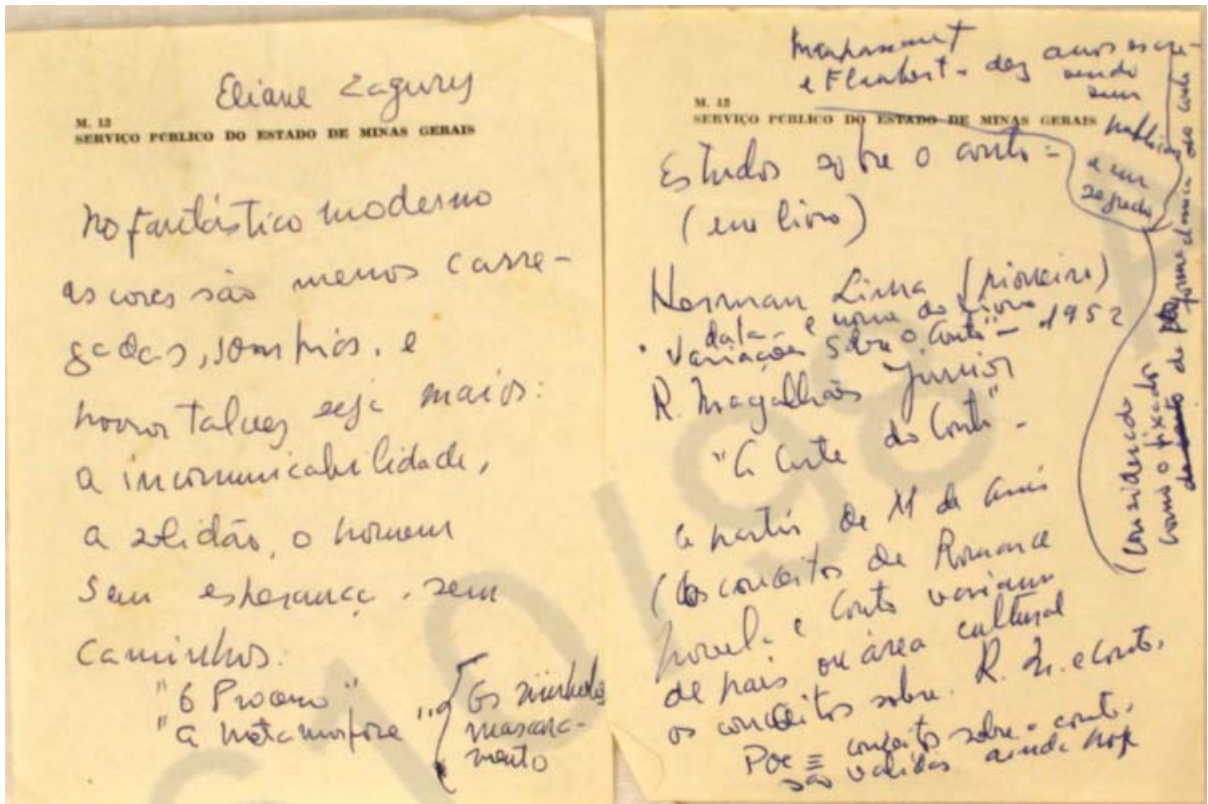 Eliane Zagury
M. 12
SERVIÇO PÚBLICO DO ESTADO DE MINAS GERAIS
No fantástico moderno
as cores são menos carre-
gadas, sombrias, e
horror talvez seja maior:
a incomunicabilidade,
a solidão, o homem
sem esperança, sem
caminhos.
"O Processo"
"A Metamorfose"
Os símbolos
mascara-
mento
Maupassant
e Flaubert - dez anos escre-
vendo
sem
publicar
M. 12
SERVIÇO PÚBLICO DO ESTADO DE MINAS GERAIS
Estudos sobre o conto =
(em livro)
a um
segredo
Herman Lima (pioneiro)
data e nome do livro
"Variações sobre o Conto" - 1952
R. Magalhães Júnior
"A Arte do Conto" -
a partir de M de Assis
(Os conceitos de Romance
novela e Conto variam
de país ou área cultural
os conceitos sobre R. N. e Conto.
Poe = conceitos sobre o conto.
são validos ainda hoje
(Considerado
como o fixador
da forma do conto